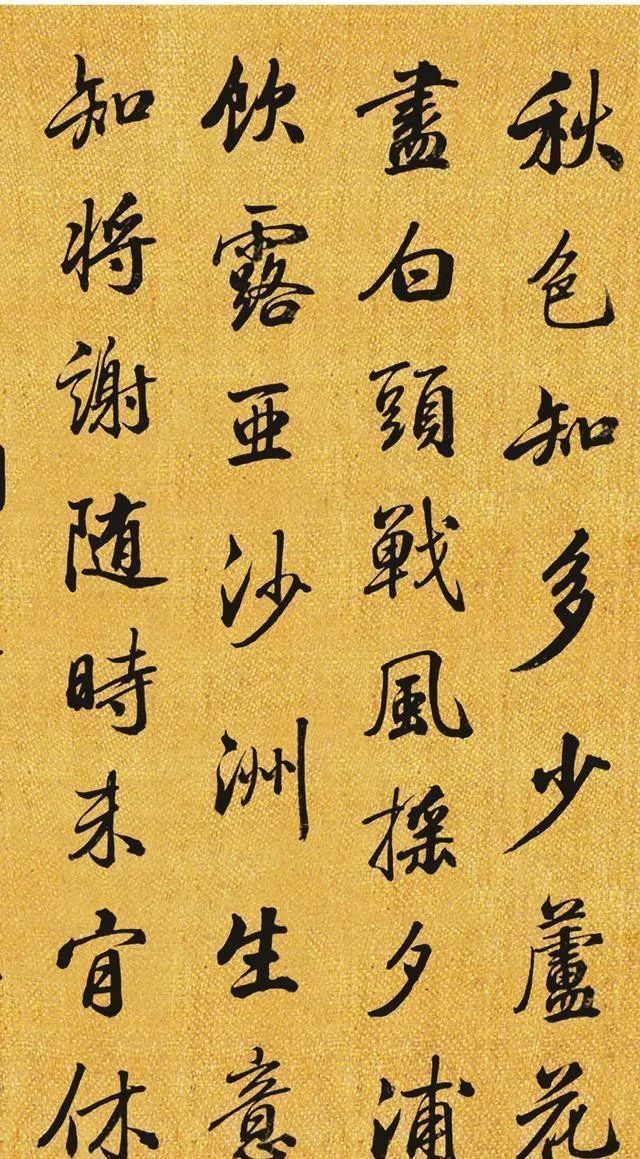 秋色知多少蘆花
盡白頭戰風搖夕浦
飲露亞沙洲生意
知將謝随時未宜休